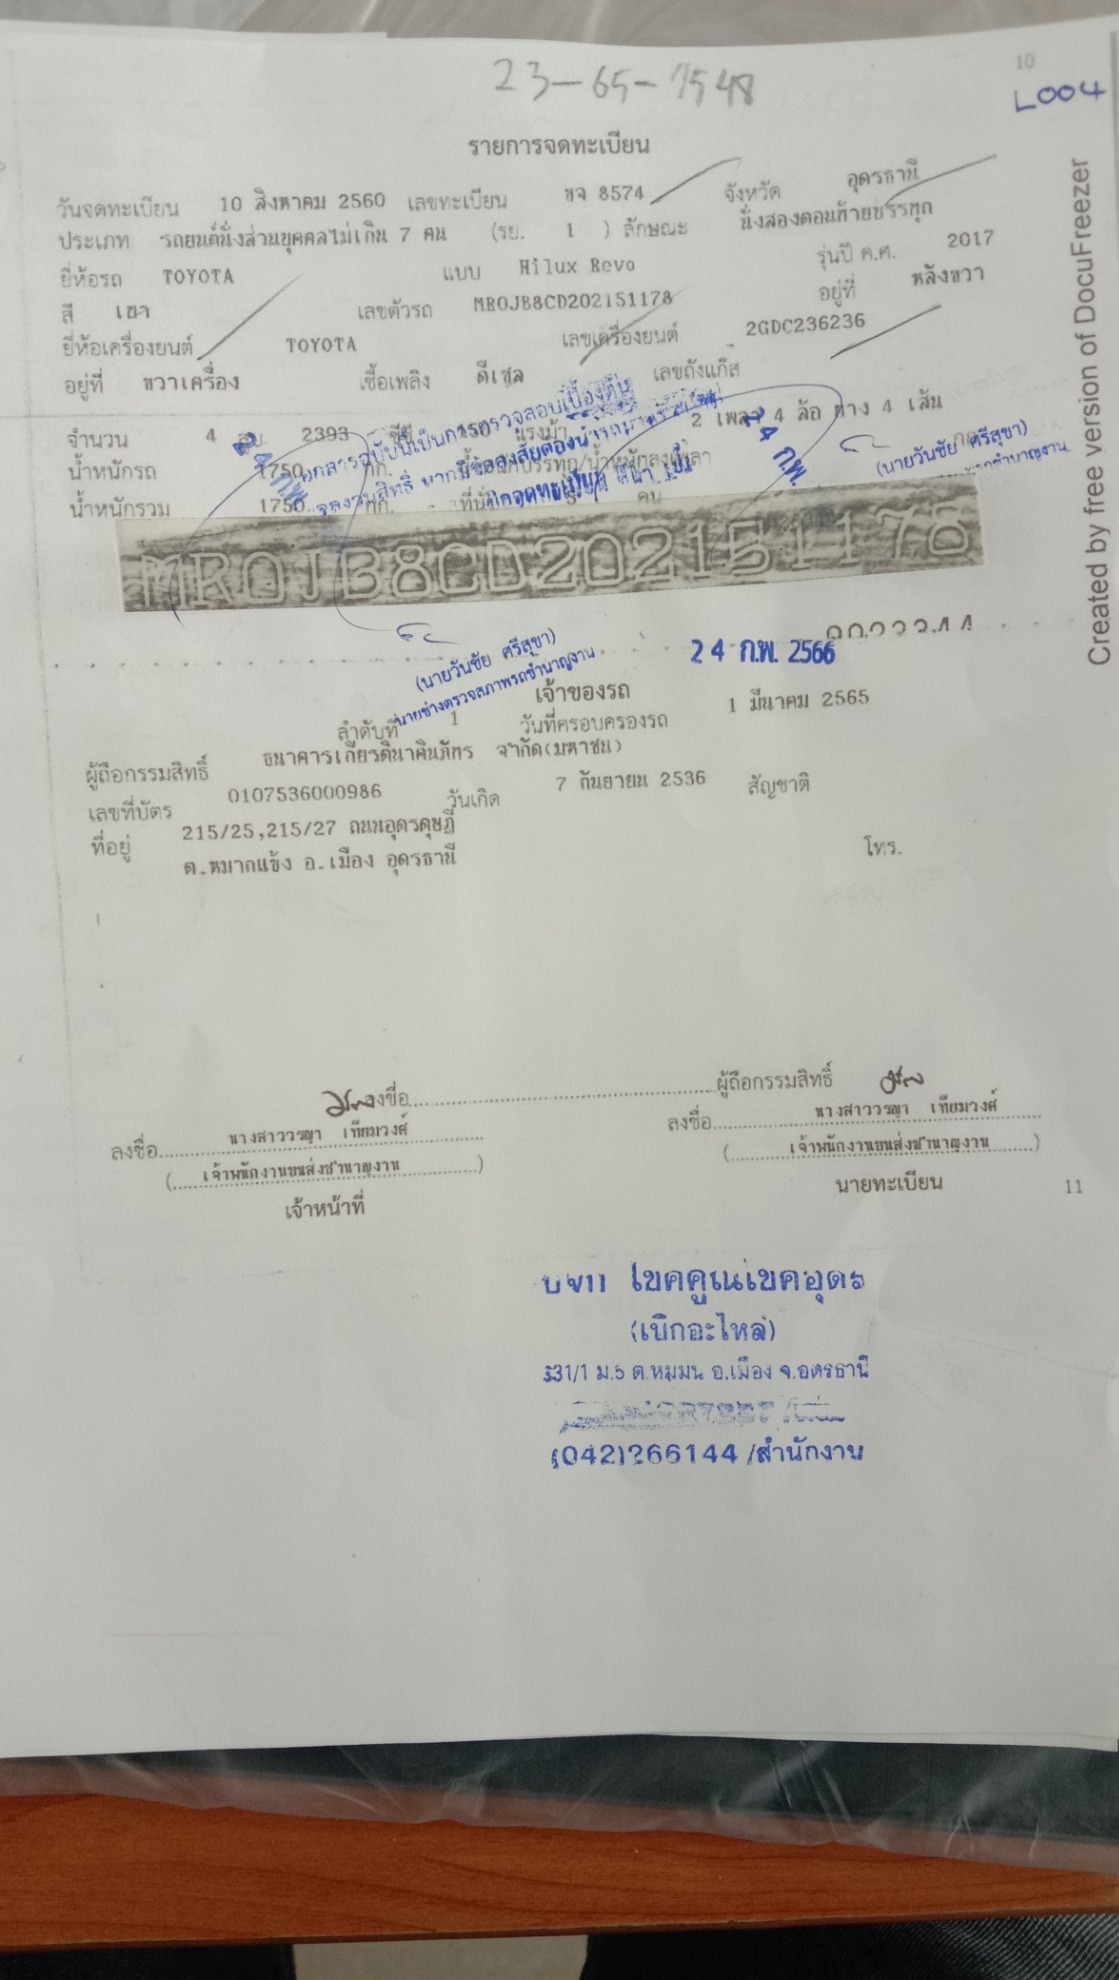 10
23-65-7548
L004
รายการจดทะเบียน
วันจดทะเบียน 10 สิงหาคม 2560 เลขทะเบียน ขจ 8574 จังหวัด อุดรธานี
ประเภท รถยนต์นั่งส่วนบุคคลไม่เกิน 7 คน (รย. 1 ) ลักษณะ นั่งสองตอนท้ายบรรทุก
ยี่ห้อรถ TOYOTA แบบ Hilux Revo รุ่นปี ค.ศ. 2017
สี เทา เลขตัวรถ MR0JB8CD202151178 อยู่ที่ หลังขวา
ยี่ห้อเครื่องยนต์ TOYOTA เลขเครื่องยนต์ 2GDC236236
อยู่ที่ ขวาเครื่อง เชื้อเพลิง ดีเซล เลขถังแก๊ส
จำนวน 4 สูบ 2393 ซีซี 150 แรงม้า 2 เพลา 4 ล้อ ยาง 4 เส้น
น้ำหนักรถ 1750 กก. น้ำหนักบรรทุก/น้ำหนักลงเพลา
น้ำหนักรวม 1750 กก. ที่นั่ง 5 คน
เอกสารฉบับนี้เป็นการตรวจสอบเบื้องต้น
24 ก.พ.
24 ก.พ.
(นายวันชัย ศรีสุขา)
MR0JB8CD202151178
(นายวันชัย ศรีสุขา)
นายช่างตรวจสภาพรถชำนาญงาน
24 ก.พ. 2566
เจ้าของรถ
ลำดับที่ 1 วันที่ครอบครองรถ 1 มีนาคม 2565
ผู้ถือกรรมสิทธิ์ ธนาคารเกียรตินาคินภัทร จำกัด(มหาชน)
เลขที่บัตร 0107536000986 วันเกิด 7 กันยายน 2536 สัญชาติ
ที่อยู่ 215/25,215/27 ถนนอุดรดุษฎี
ต.หมากแข้ง อ.เมือง อุดรธานี โทร.
ลงชื่อ ผู้ถือกรรมสิทธิ์
ลงชื่อ นางสาววรญา เทียมวงศ์ ลงชื่อ นางสาววรญา เทียมวงศ์
( เจ้าพนักงานขนส่งชำนาญงาน ) ( เจ้าพนักงานขนส่งชำนาญงาน )
เจ้าหน้าที่ นายทะเบียน
11
โชคคูณโชคอุดร
(เบิกอะไหล่)
331/1 ม.5 ต.หมูม่น อ.เมือง จ.อุดรธานี
(042)266144 /สำนักงาน
Created by free version of DocuFreezer